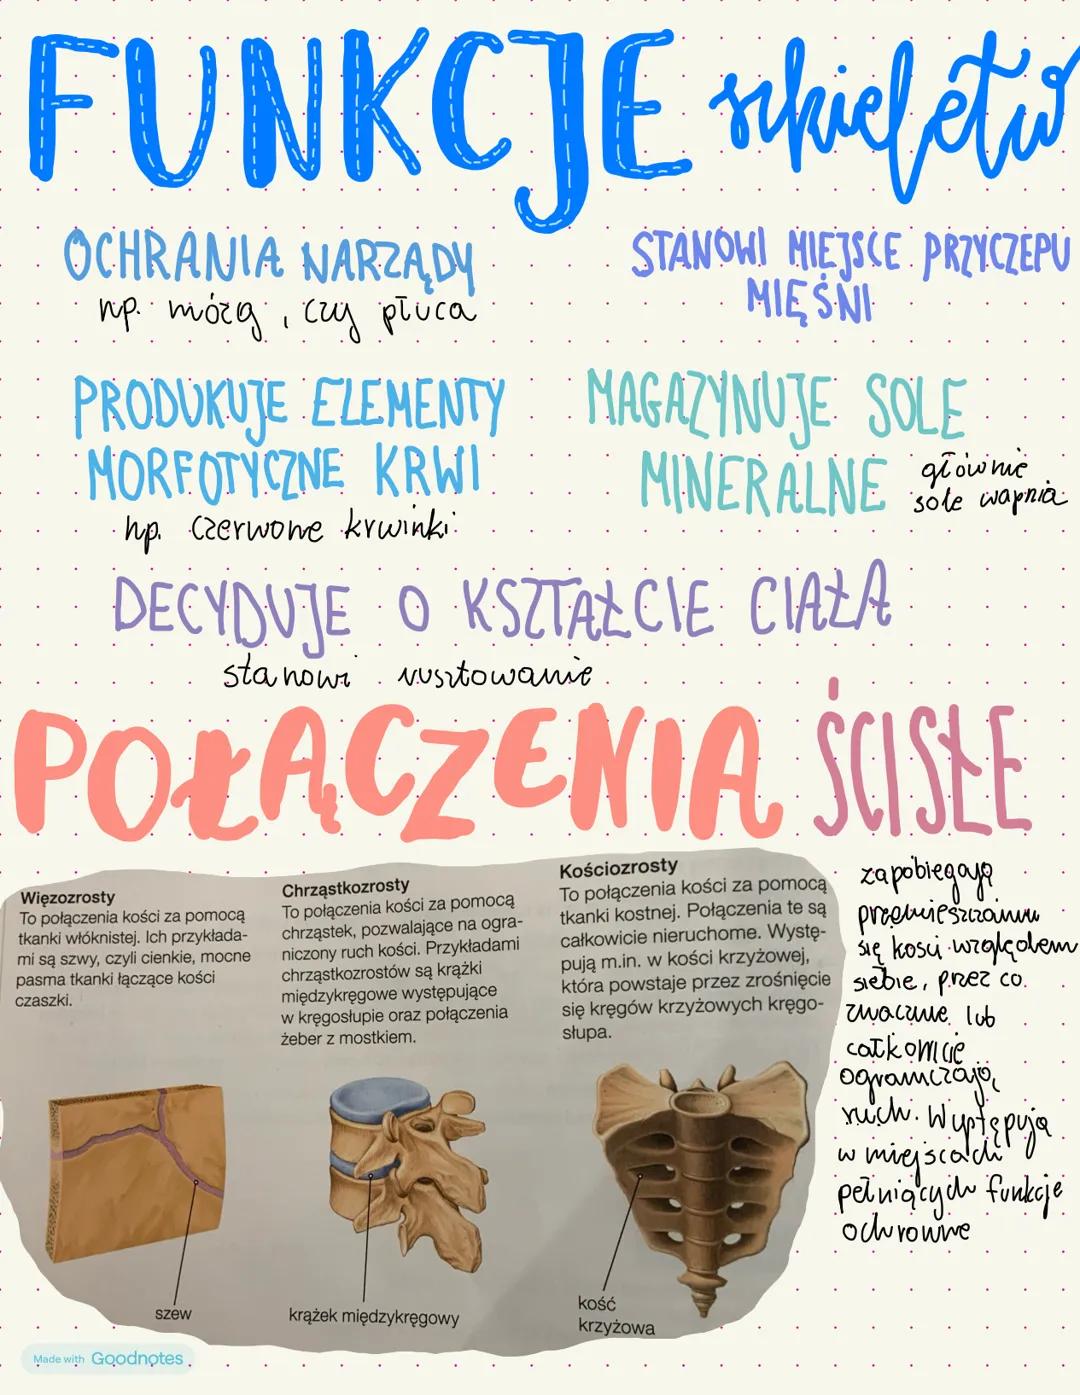 FUNKCJE szkieletu
OCHRANIA NARZĄDY
np. mózg, czy płuca
STANOWI MIEJSCE PRZYCZEPU
MIĘŚNI
PRODUKUJE ELEMENTY
MORFOTYCZNE KRWI
np. czerwone krwinki
MAGAZYNUJE SOLE
MINERALNE głównie
sole wapnia
DECYDUJE O KSZTAŁCIE CIAŁA
stanowi rusztowanie
POŁĄCZENIA ŚCISŁE
Więzozrosty
To połączenia kości za pomocą
tkanki włóknistej. Ich przykłada-
mi są szwy, czyli cienkie, mocne
pasma tkanki łączące kości
czaszki.
szew
Chrząstkozrosty
To połączenia kości za pomocą
chrząstek, pozwalające na ogra-
niczony ruch kości. Przykładami
chrząstkozrostów są krążki
międzykręgowe występujące
w kręgosłupie oraz połączenia
żeber z mostkiem.
krążek międzykręgowy
Kościozrosty
To połączenia kości za pomocą
tkanki kostnej. Połączenia te są
całkowicie nieruchome. Wystę-
pują m.in. w kości krzyżowej,
która powstaje przez zrośnięcie
się kręgów krzyżowych kręgo-
słupa.
kość
krzyżowa
zapobiegają
przemieszczaniu
się kości względem
siebie, przez co
znacznie lub
całkowicie
ograniczają
ruch. Występują
w miejscach
pełniących funkcje
ochronne
Made with Goodnotes